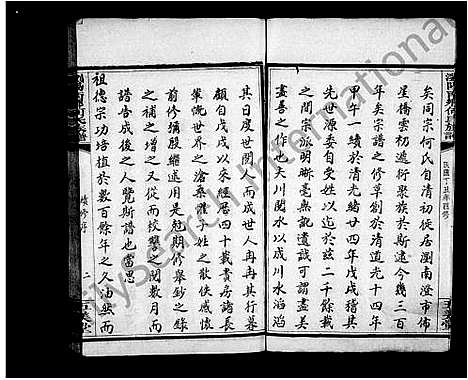 矣同宗何氏自清初徙居瀏南澄市佈
星僑雲初遞衍聚族於斯逮今幾三百
年矣宗譜之修草創於清道光十四年
甲午一續於清光緒廿四年戊戌稽其
先世源委自受姓以迄於茲二千餘載
之間宗派明晰毫無訛遺誠可謂盡美
盡善之作矣夫川閱水以成川水滔滔
其日度世閱人而成世人冉冉其行暮
顧自戊戌以來經卷四十載書房諸長
輩慨世界之滄桑子姓之散佚感懷
前修殫殷繼述用冠期修舉鈔之錄
之補之增之又從而校讐之閱數月而
譜告成後之人覽斯譜也當思
祖德宗功培植於數百餘年之久油然而
續修序
二
民國十五年四修